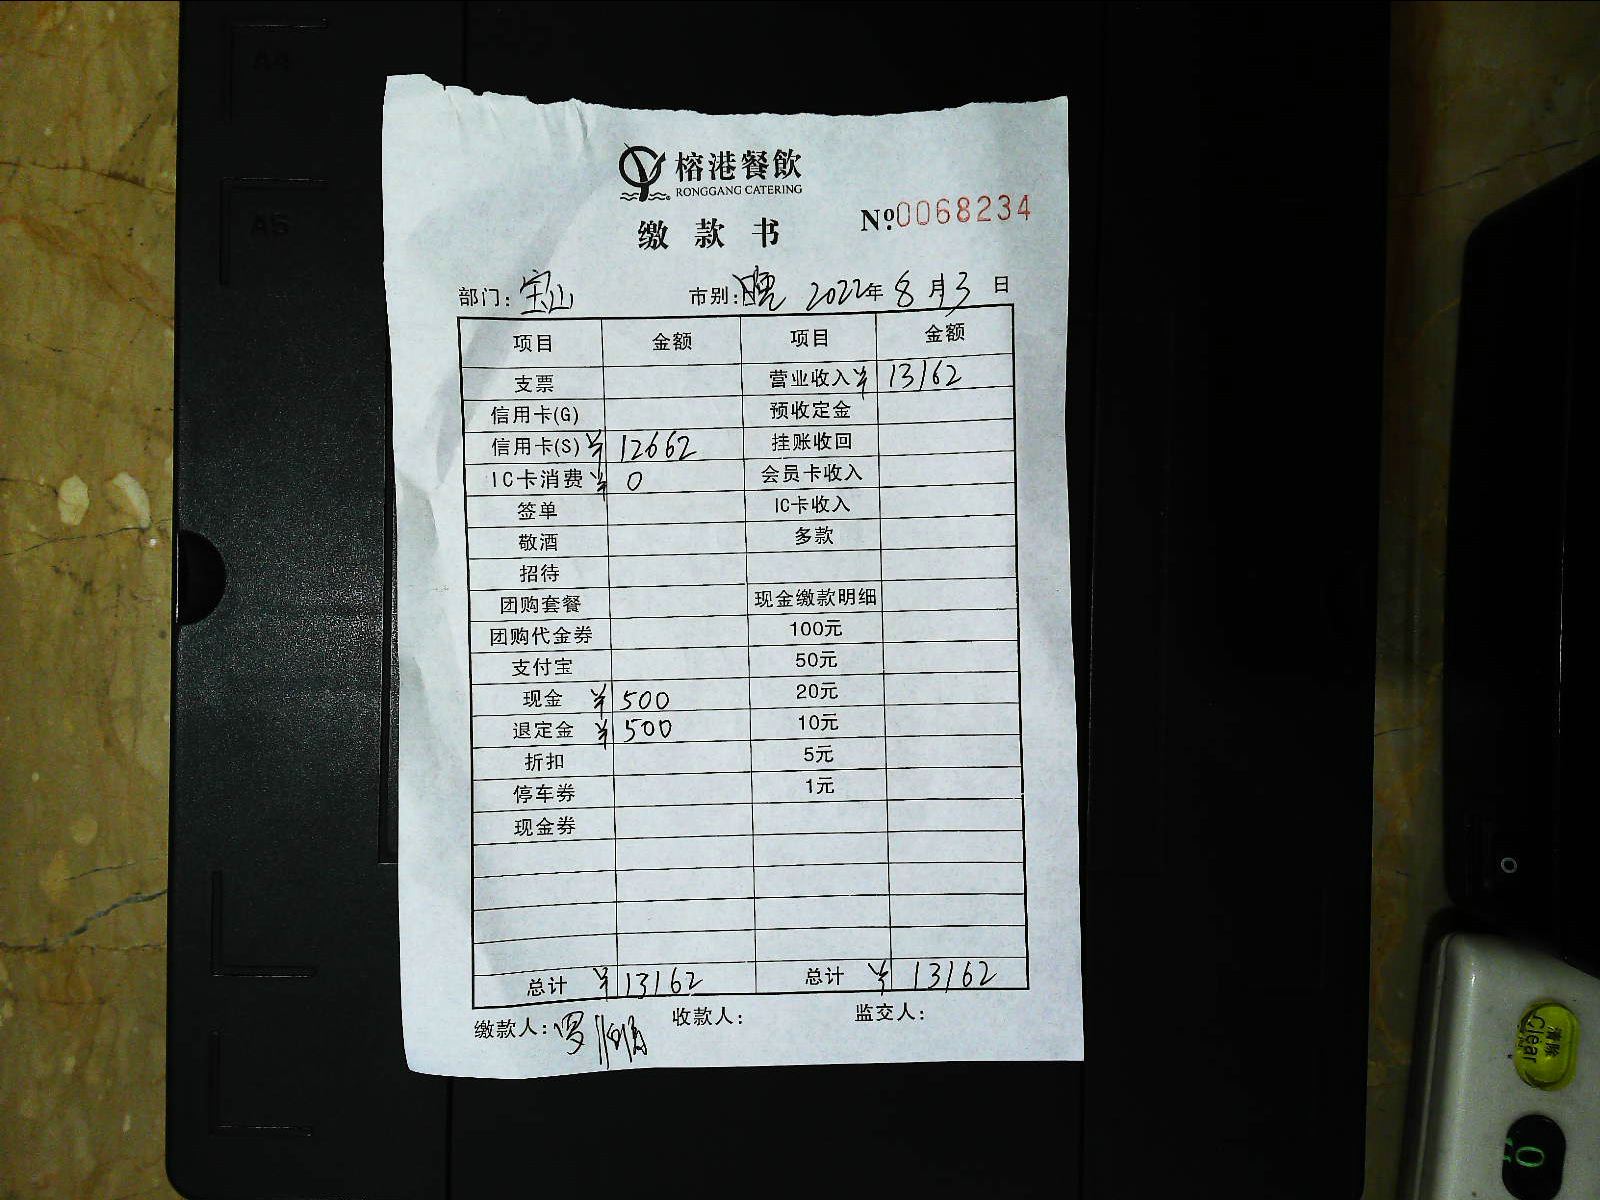 A4
A5
榕港餐飲
RONGGANG CATERING
缴款书
№0068234
部门：宝山 市别：晚 2022年8月3日
项目 金额 项目 金额
支票 营业收入 ¥ 13162
信用卡(G) 预收定金
信用卡(S) ¥ 12662 挂账收回
IC卡消费 ¥ 0 会员卡收入
签单 IC卡收入
敬酒 多款
招待
团购套餐 现金缴款明细
团购代金券 100元
支付宝 50元
现金 ¥ 500 20元
退定金 ¥ 500 10元
折扣 5元
停车券 1元
现金券
总计 ¥ 13162 总计 ¥ 13162
缴款人：罗 收款人： 监交人：
清除
Clear
0